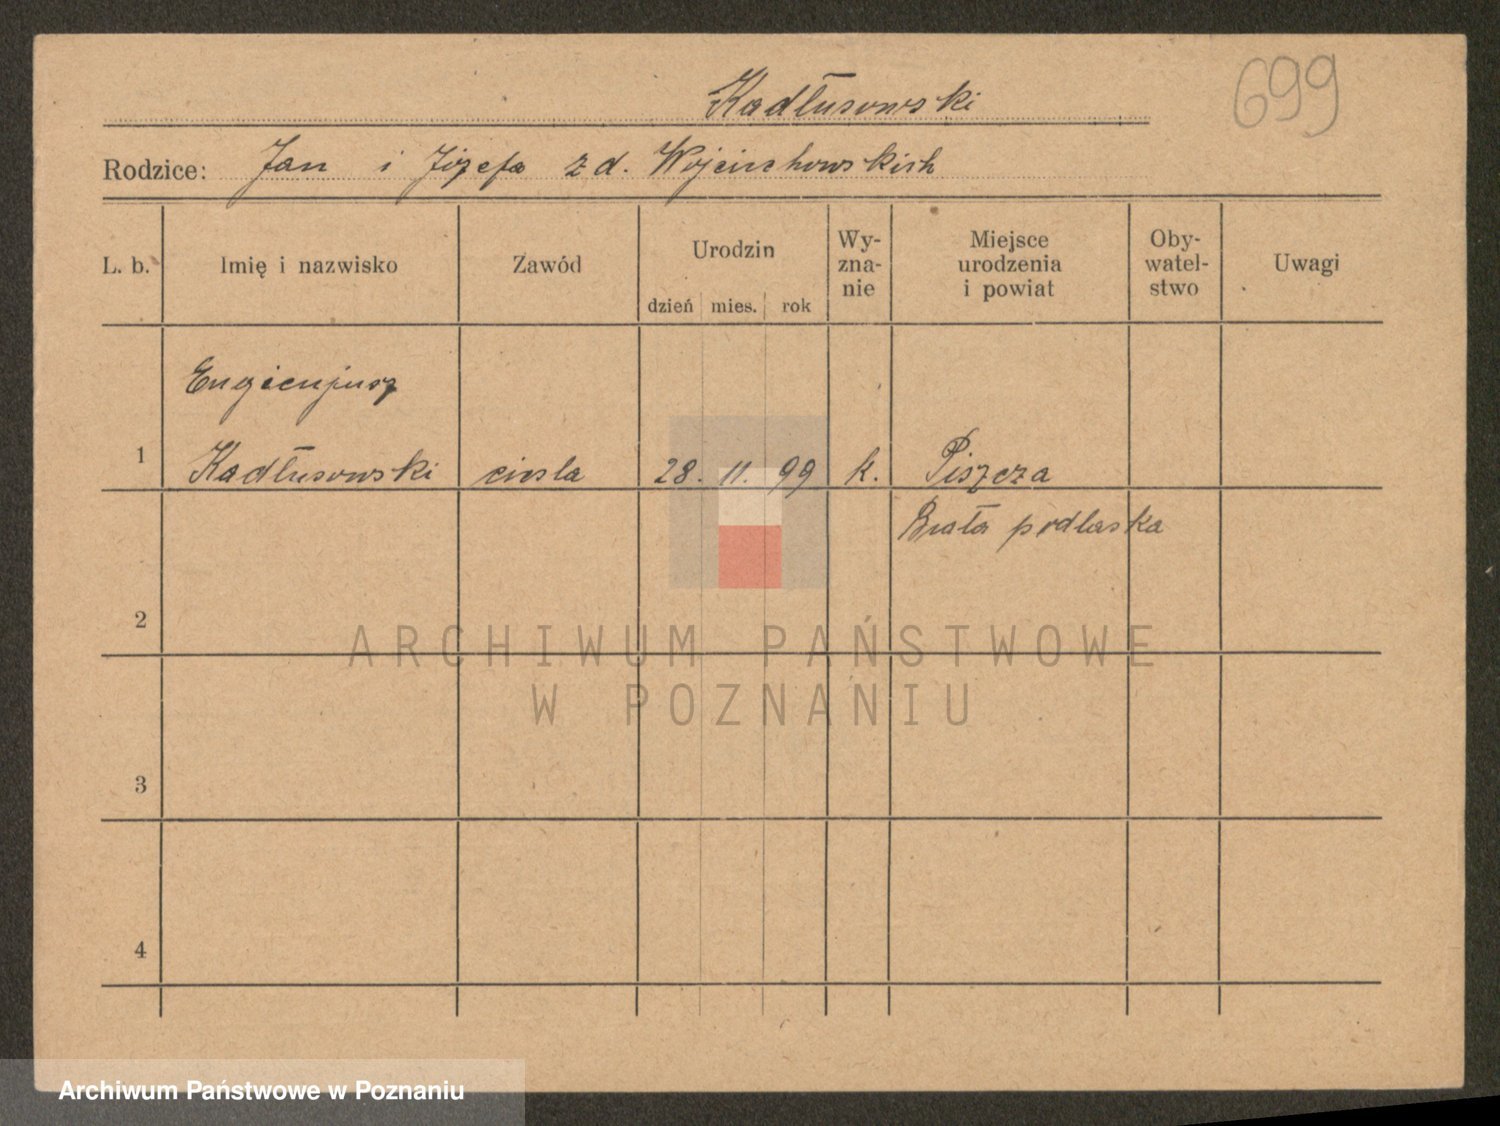 Kadłusowski
699
Rodzice: Jan i Józefa z d. Wojciechowskich
L. b. Imię i nazwisko Zawód Urodzin dzień mies. rok Wy-zna-nie Miejsce urodzenia i powiat Oby-watel-stwo Uwagi
Eugieniusz
1 Kadłusowski cieśla 28. 11. 99 k. Piszcza
Biała podlaska
2
ARCHIWUM PAŃSTWOWE
W POZNANIU
3
4
Archiwum Państwowe w Poznaniu